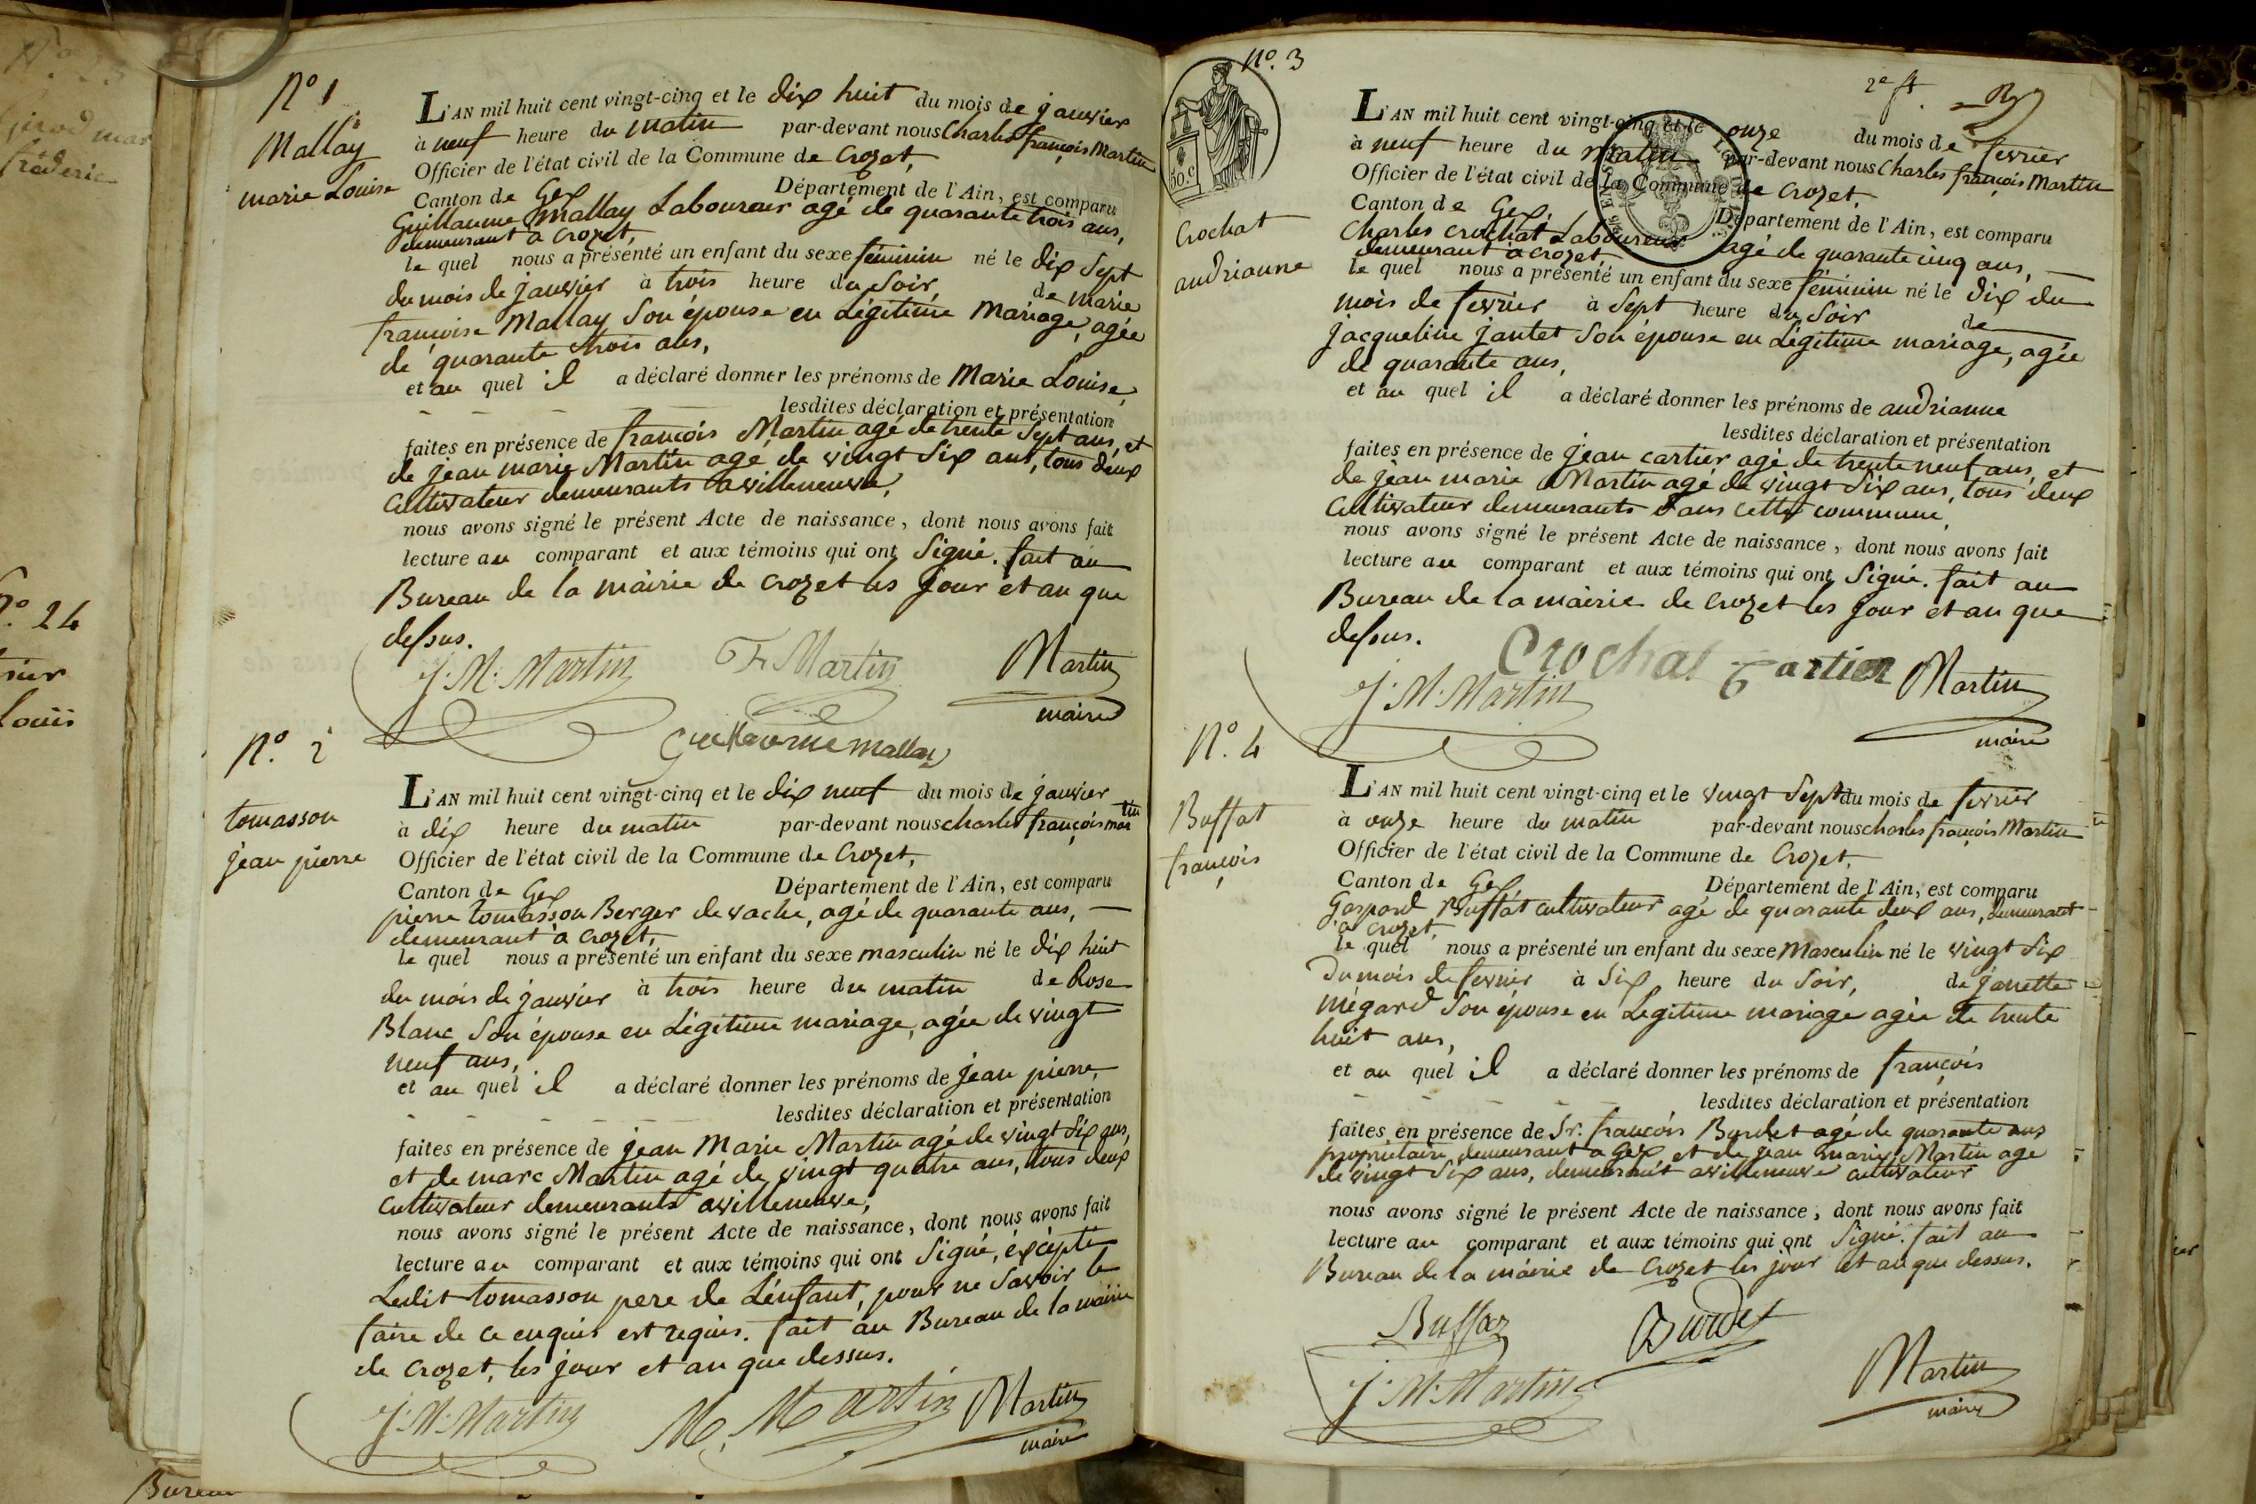 N° 1
Mallay
marie Louise
L'AN mil huit cent vingt-cinq et le dix huit du mois de janvier
à neuf heure du matin par-devant nous Charles françois Martin
Officier de l'état civil de la Commune de Crozet,
Canton de Gex Département de l'Ain, est comparu
Guillaume Mallay Laboureur agé de quarante trois ans,
demeurant à Crozet,
le quel nous a présenté un enfant du sexe féminin né le dix Sept
du mois de janvier à trois heure du Soir, de marie
françoise Mallay Son épouse en Légitime Mariage, agée
de quarante trois ans,
et au quel il a déclaré donner les prénoms de Marie Louise,
lesdites déclaration et présentation
faites en présence de françois Martin agé de trente Sept ans, et
de jean marie Martin agé de vingt Six ans, tous deux
Cultivateur demeurants a villeneuve,
nous avons signé le présent Acte de naissance, dont nous avons fait
lecture au comparant et aux témoins qui ont Signé. fait au
Bureau de la mairie de Crozet les jour et an que
dessus.
J. M. Martin F. Martin Martin
maire
Guillaume mallay
N°. 2
tomasson
jean pierre
L'AN mil huit cent vingt-cinq et le dix neuf du mois de janvier
à dix heure du matin par-devant nous charles françois martin
Officier de l'état civil de la Commune de Crozet,
Canton de Gex Département de l'Ain, est comparu
pierre tomasson Berger de vache, agé de quarante ans,
demeurant à Crozet,
le quel nous a présenté un enfant du sexe masculin né le dix huit
du mois de janvier à trois heure du matin de Rose
Blanc Son épouse en Légitime mariage, agée de vingt
neuf ans,
et au quel il a déclaré donner les prénoms de jean pierre,
lesdites déclaration et présentation
faites en présence de jean Marie Martin agé de vingt Six ans,
et de marc Martin agé de vingt quatre ans, tous deux
Cultivateur demeurants a villeneuve,
nous avons signé le présent Acte de naissance, dont nous avons fait
lecture au comparant et aux témoins qui ont Signé, éxcepté
Ledit tomasson pere de L'enfant, pour ne Savoir le
faire de ce enquis est requis. fait au Bureau de la mairie
de Crozet, les jour et an que dessus.
J. M. Martin M. Martin Martin
maire
N°. 3
50.c
Crochat
andrianne
2e ft
L'AN mil huit cent vingt-cinq et le onze du mois de fevrier
à neuf heure du matin par-devant nous Charles françois Martin
Officier de l'état civil de la Commune de Crozet,
Canton de Gex, Département de l'Ain, est comparu
Charles Crochat Laboureur agé de quarante cinq ans,
demeurant à Crozet,
le quel nous a présenté un enfant du sexe féminin né le dix du
mois de fevrier à Sept heure du Soir de
jacqueline jantet Son épouse en Légitime mariage, agée
de quarante ans,
et au quel il a déclaré donner les prénoms de andrianne
lesdites déclaration et présentation
faites en présence de jean cartier agé de trente neuf ans, et
de jean marie Martin agé de vingt Six ans, tous deux
Cultivateur demeurants dans cette commune,
nous avons signé le présent Acte de naissance, dont nous avons fait
lecture au comparant et aux témoins qui ont Signé. fait au
Bureau de la mairie de Crozet les jour et an que
dessus.
Crochat Cartier
J. M. Martin Martin
maire
N°. 4
Buffat
françois
L'AN mil huit cent vingt-cinq et le vingt Sept du mois de fevrier
à onze heure du matin par-devant nous charles françois Martin
Officier de l'état civil de la Commune de Crozet,
Canton de Gex Département de l'Ain, est comparu
Gaspard Buffat cultivateur agé de quarante deux ans, demeurant
à Crozet,
le quel nous a présenté un enfant du sexe Masculin né le vingt Six
du mois de fevrier à Six heure du Soir, de janette
mégard Son épouse en Legitime mariage agée de trente
huit ans,
et au quel il a déclaré donner les prénoms de françois
lesdites déclaration et présentation
faites en présence de Sr. françois Burdet agé de quarante ans
propriétaire, demeurant a Gex, et de jean marie Martin agé
de vingt Six ans, demeurant a villeneuve cultivateur
nous avons signé le présent Acte de naissance, dont nous avons fait
lecture au comparant et aux témoins qui ont Signé. fait au
Bureau de la mairie de Crozet les jour et an que dessus.
Buffat Burdet
J. M. Martin Martin
maire
N°. 24
Louis
Bureau